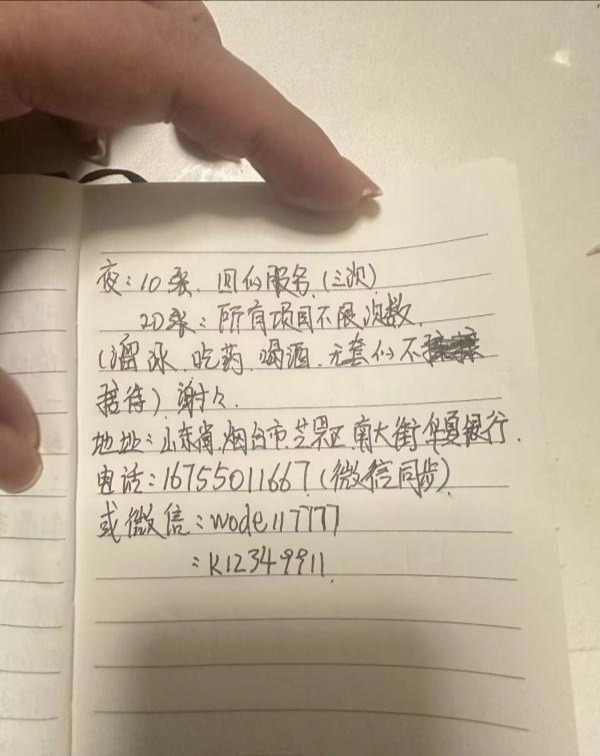 夜：10张．回似服务．(三次)
20张：所有项目不限次数．
(溜冰．吃药．喝酒．无套似不
接待) 谢々．
地址：山东省．烟台市．芝罘区．南大街．华夏银行．
电话：16755011667 (微信同步)
或微信：wode117777
：K12349911